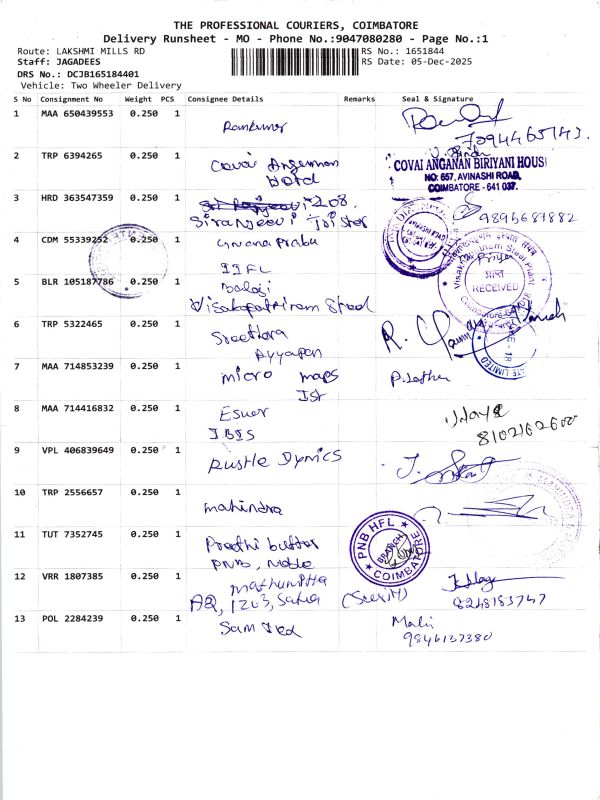 THE PROFESSIONAL COURIERS, COIMBATORE
Delivery Runsheet - MO - Phone No.:9047080280 - Page No.:1
Route: LAKSHMI MILLS RD
RS No.: 1651844
Staff: JAGADEES
RS Date: 05-Dec-2025
DRS No.: DCJB165184401
Vehicle: Two Wheeler Delivery
S No Consignment No Weight PCS Consignee Details Remarks Seal & Signature
1 MAA 650439553 0.250 1 Ramkumar
7094465143.
2 TRP 6394265 0.250 1 Covai Angannan
Hotel
COVAI ANGANAN BIRIYANI HOUS
NO: 657, AVINASHI ROAD,
COIMBATORE - 641 037.
3 HRD 363547359 0.250 1 208.
Siranjeevi
9894687882
4 CDM 55339252 0.250 1 Gnana Prabu
IIFL
5 BLR 105187786 0.250 1 Balaji
Visakapattinam Steel
Priya
Visakhapatnam Steel Plant
RECEIVED
6 TRP 5322465 0.250 1 Sreethara
Ayyapan
7 MAA 714853239 0.250 1 micro maps
Ist
8 MAA 714416832 0.250 1 Esuer
IBIS
9 VPL 406839649 0.250 1 Rustle Dymics
10 TRP 2556657 0.250 1 mahindra
11 TUT 7352745 0.250 1 Preethi
PNB, Noble
PNB HFL
BRANCH
COIMBATORE
12 VRR 1807385 0.250 1 Mathumitha
A2, 1203,
8248183747
13 POL 2284239 0.250 1 Sam
Mali
9846137380